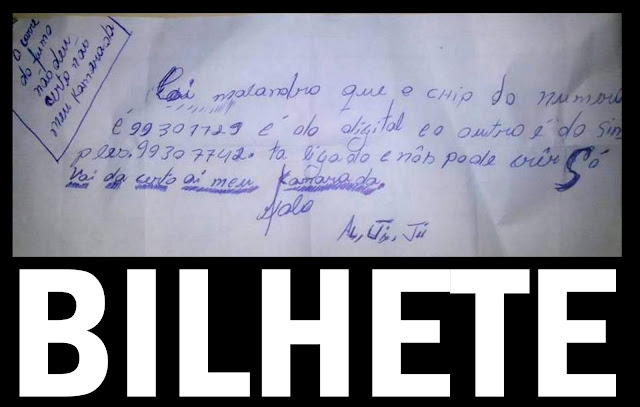 O corre
do fumo
não deu
certo não
meu Kamarada
Eai malandro que o CHIP do numero
é 99301729 é do digital e o outro é do sim
ples. 99307742. ta ligado e nós pode vir Só
Vai da certo ai meu Kamarada.
BILHETE